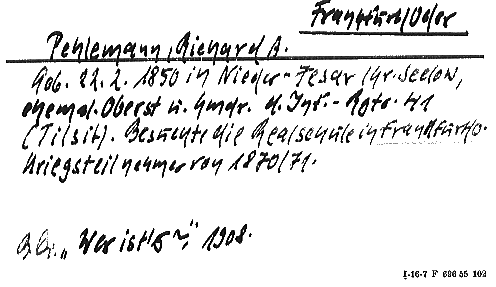 Frankfurt/Oder
Pehlemann, Richard A.
Geb. 22.2. 1850 in Nieder-Jesar Kr. Seelow,
ehemal. Oberst u. Kmdr. d. Inf.-Rgts. 41
(Tilsit). Besuchte die Realschule in Frankfurt/O.
Kriegsteilnehmer von 1870/71.
"Wer ist's?" 1908.
I-16-7 F 696 55 102